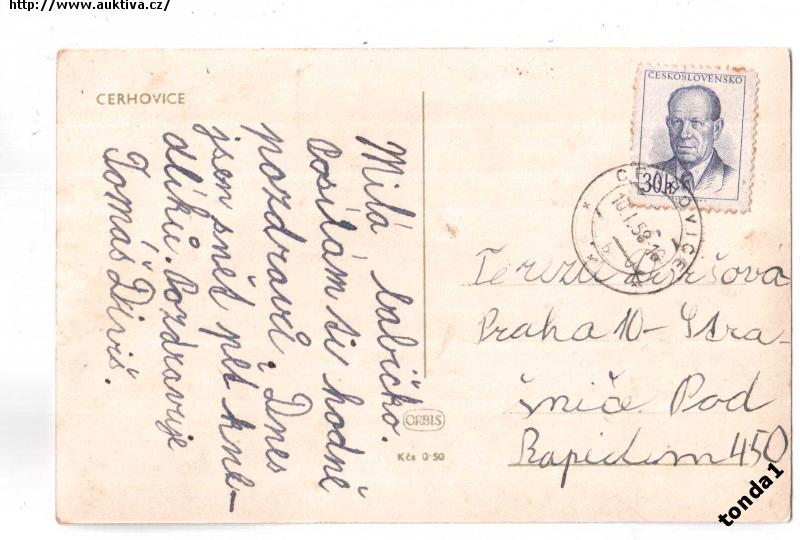 http://www.auktiva.cz/
CERHOVICE
Milá babičko.
Posílám ti hodně
pozdravů. Dnes
jsem sněd pět kne-
dlíků. Pozdravuje
Tomáš Diviš.
ČESKOSLOVENSKO
30h
CERHOVICE
10.I.58-16
Praha 10- Stra-
šnice Pod
Rapidem 450
ORBIS
Kčs 0·50
tonda1